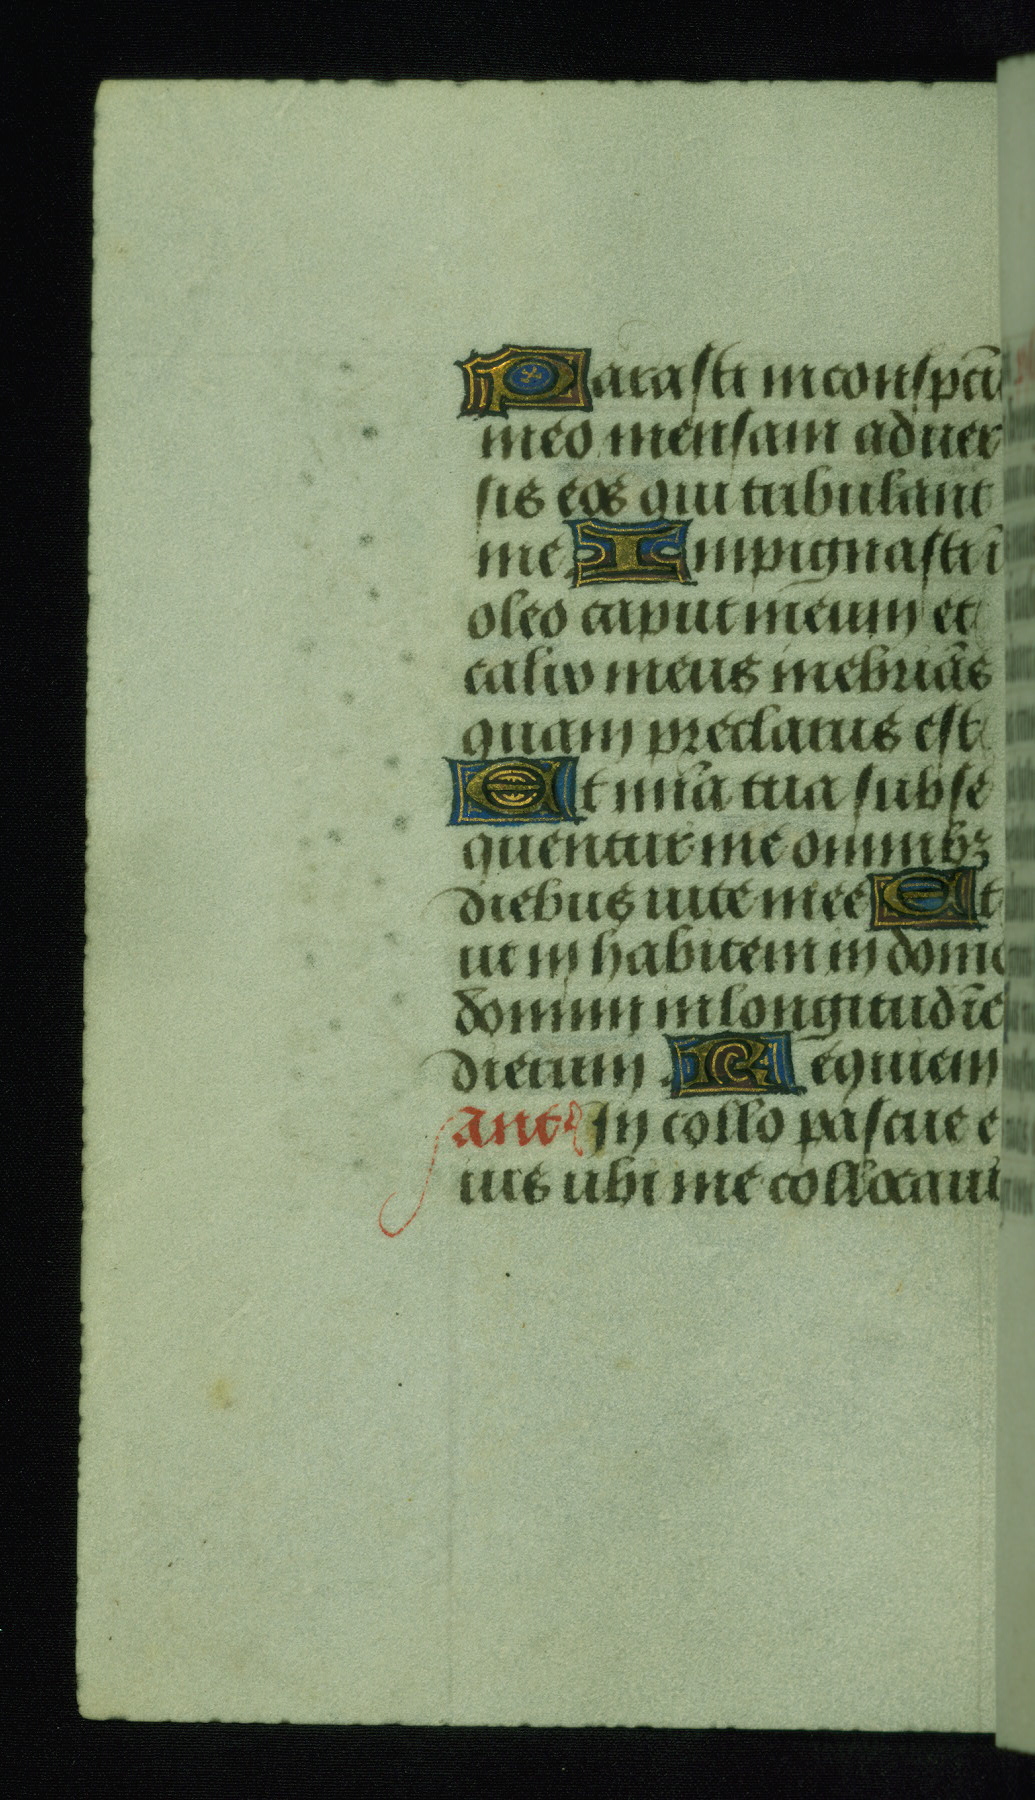 Parasti in conspcũ
meo mensam aduer
sis eos qui tribulant
me Impignasti ĩ
oleo caput meum et
calix meus inebriãs
quam preclarus est
Et mĩa tua subse
quentur me omnibꝫ
diebus uite mee Et
ut in habitem in domo
domini in longitudĩe
dierum Requiem
ant' In collo pascue e
ius ubi me collocaui